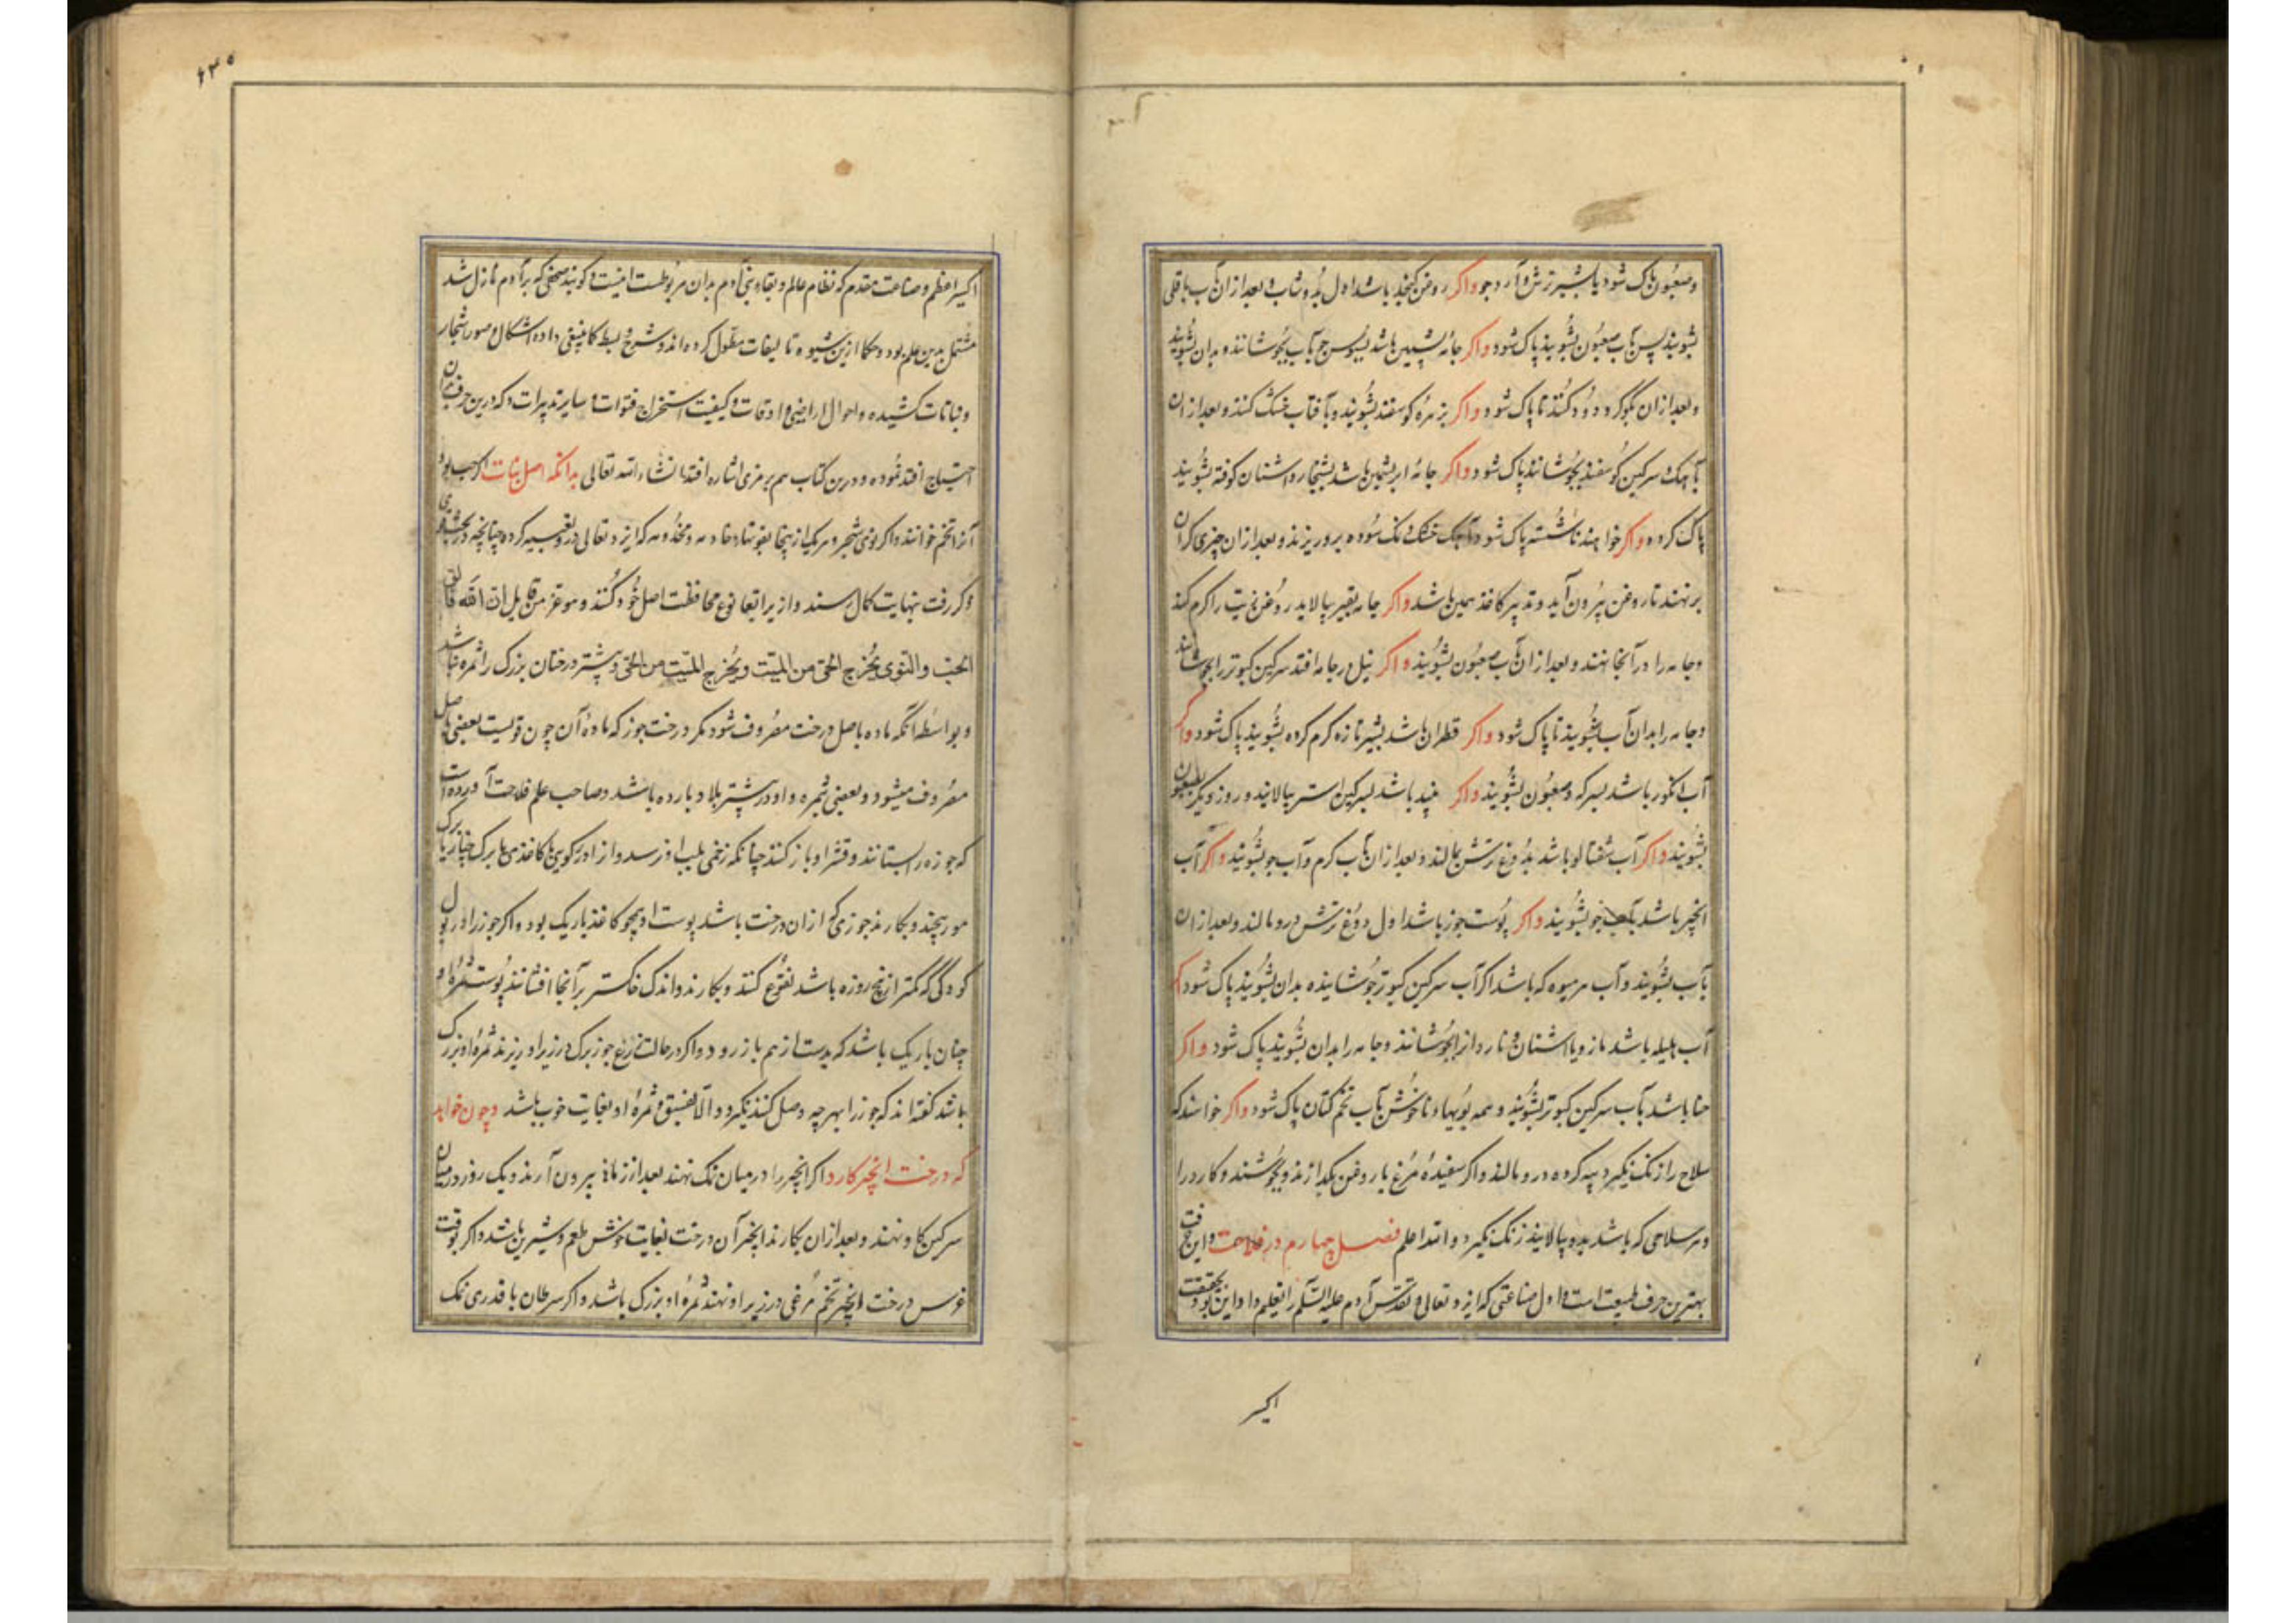 و صعبُون پاک شود یا بشیر ترش و آرد جو واکر روغن کنجد باشد اول بدوشاب و بعد از آن بآب باقلی
بشویند پس بآب صعبُون بشُویند پاک شود واکر جامٔه پشمین باشد بسبوس جو بآب بجُوشانند و بدان بشُویند
و بعد از ان بکوکرد دُود کُنند تا پاک شود واکر بزهرٔه کوسفند بشُویند و بآفتاب خشک کنند و بعد از ان
بآهک و سرکین کوُسفند بجُوشانند پاک شود واکر جامٔه ابریشمین باشد بشنجار و اشنان کوفته بشُویند
پاک کرده واکر خواهند ناشُسته پاک شود بآهک خشک و نمک سُوده برو ریزند و بعد از ان چیزی کران
بر نهند تا روغن بیرُون آید و تدبیر کاغذ همین باشد واکر جامه بقیر بیالاید روُغن زیت را کرم کنند
و جامه را در آنجا نهند و بعد از ان بآب صعبُون بشُویند واکر نیل در جامه افتد سرکین کبوتر را بجوشانند
و جامه را بدان آب بشُویند تا پاک شود واکر قطران باشد بشیر تازه کرم کرده بشُویند پاک شود واکر
آب انکور باشد بسرکه و صعبُون بشُویند واکر باشد بسرکین استر بیالایند و روز دیکر بصعبون
بشُویند واکر آب شفتالو باشد بدُوغ ترش بمالند و بعد از ان بآب کرم و آب جو بشُویند واکر آب
انجیر باشد بآب جو بشُویند واکر پوُست جوز باشد اول دوُغ ترش درو مالند و بعد از ان
بآب بشُویند و آب هر میوه که باشد اکر آب سرکین کبوتر جوُشانیده بدان بشُویند پاک شود اکر
آب هلیله باشد مازو یا اشنان و ناردانه را بجوُشانند و جامه را بدان بشُویند پاک شود واکر
حنا باشد بآب سرکین کبوتر بشُویند و همه بوُیهاء ناخوُش بآب تخم کتان پاک شود واکر خواهند که
سلاح را زنک نکیرد پیه کرده درو مالند واکر سفیدهٔ مُرغ با روغن بکدازند و بجُوشند و کارد را
و هر سلاحی که باشد بدو بیالایند زنک نکیرد و اللّه اعلم فصل چهارم در فلاحت و این حرفت
بهترین حرف طبیعت است و اول صناعتی که ایزد تعالی و تقدّس آدم علیه السّلم را تعلیم داد این بود و بحقیقت
اکسیر
اکسیر اعظم و صناعت مقدم که نظام عالم و بقاء بنی آدم بدان مربوُطست اینست و کویند صحفی که بر آدم نازل شد
مشتمل بدین علم بود و حکما ازین شیوه تالیفات مطوّل کرده اند و شرح و بسط کما ینبغی داده اشکال و صور اشجار
و نباتات کشیده و احوال اراضی و اوقات و کیفیت استخراج قنوات و سایر تدبیرات که درین حرف بدان
احتیاج افتد نموُده و درین کتاب هم برمزی اشاره افتد انشاء اللّه تعالی بدانکه اصل نبات اکر حب بود
آنرا تخم خوانند واکر نوی شجر و هر یک از اینجا بقوتهاء خادمه و مخدُومه که ایزد تعالی درو تعبیه کرده چنانچه در بحث قوی
ذکر رفت بنهایت کمال رسند و از برا ابقاء نوع محافظت اصل خُود کُنند و هو عز من قایل انّ اللّه فالق
الحبّ والنّوی یُخرج الحیّ من المیّت ویُخرج المیّت من الحیّ و بیشتر درختان بزرک را ثمره نباشد
و بواسطٔه آنکه ماده باصل درخت مصرُوف شود مکر درخت جوز که مادهٔ آن چون قویست بعضی باصل
مصرُوف میشود و بعضی بثمره و او در بیشتر بلاد بارده باشد و صاحب علم فلاحت آورده است
که جوزه را بستانند و قشر او باز کنند چنانکه زخمی بلب او نرسد و او را در کویی یا کاغذی یا برک چنار یا برک
مو پیچند و بکارند جوزی که از ان درخت باشد پوست او همچو کاغذ باریک بود واکر جوز را در بول
کودکی که کمتر از پنج روزه باشد نقوُع کنند و بکارند و اندک خاکستر بر آنجا افشانند پوُست ثمرهٔ او
چنان باریک باشد که بدست از هم باز رود واکر در حالت زرع جوز برک رز زیر او ریزند ثمرهٔ او بزرک
باشد کفته اند که جوز را بهر چه وصل کنند نکیرد و الّا بفستق و ثمرهٔ او بغایت خوب باشد و چون خواهند
که درخت انجیر کارد اکر انجیر را در میان نمک نهند بعد از زمانی بیرون آرند و یک روز در میان
سرکین کاو نهند و بعد از ان بکارند انجیر آن درخت بغایت خوش طعم و شیرین باشد واکر بوقت
غرس درخت انجیر تخم مُرغی در زیر او نهند ثمرهٔ او بزرک باشد واکر سرطان با قدری نمک